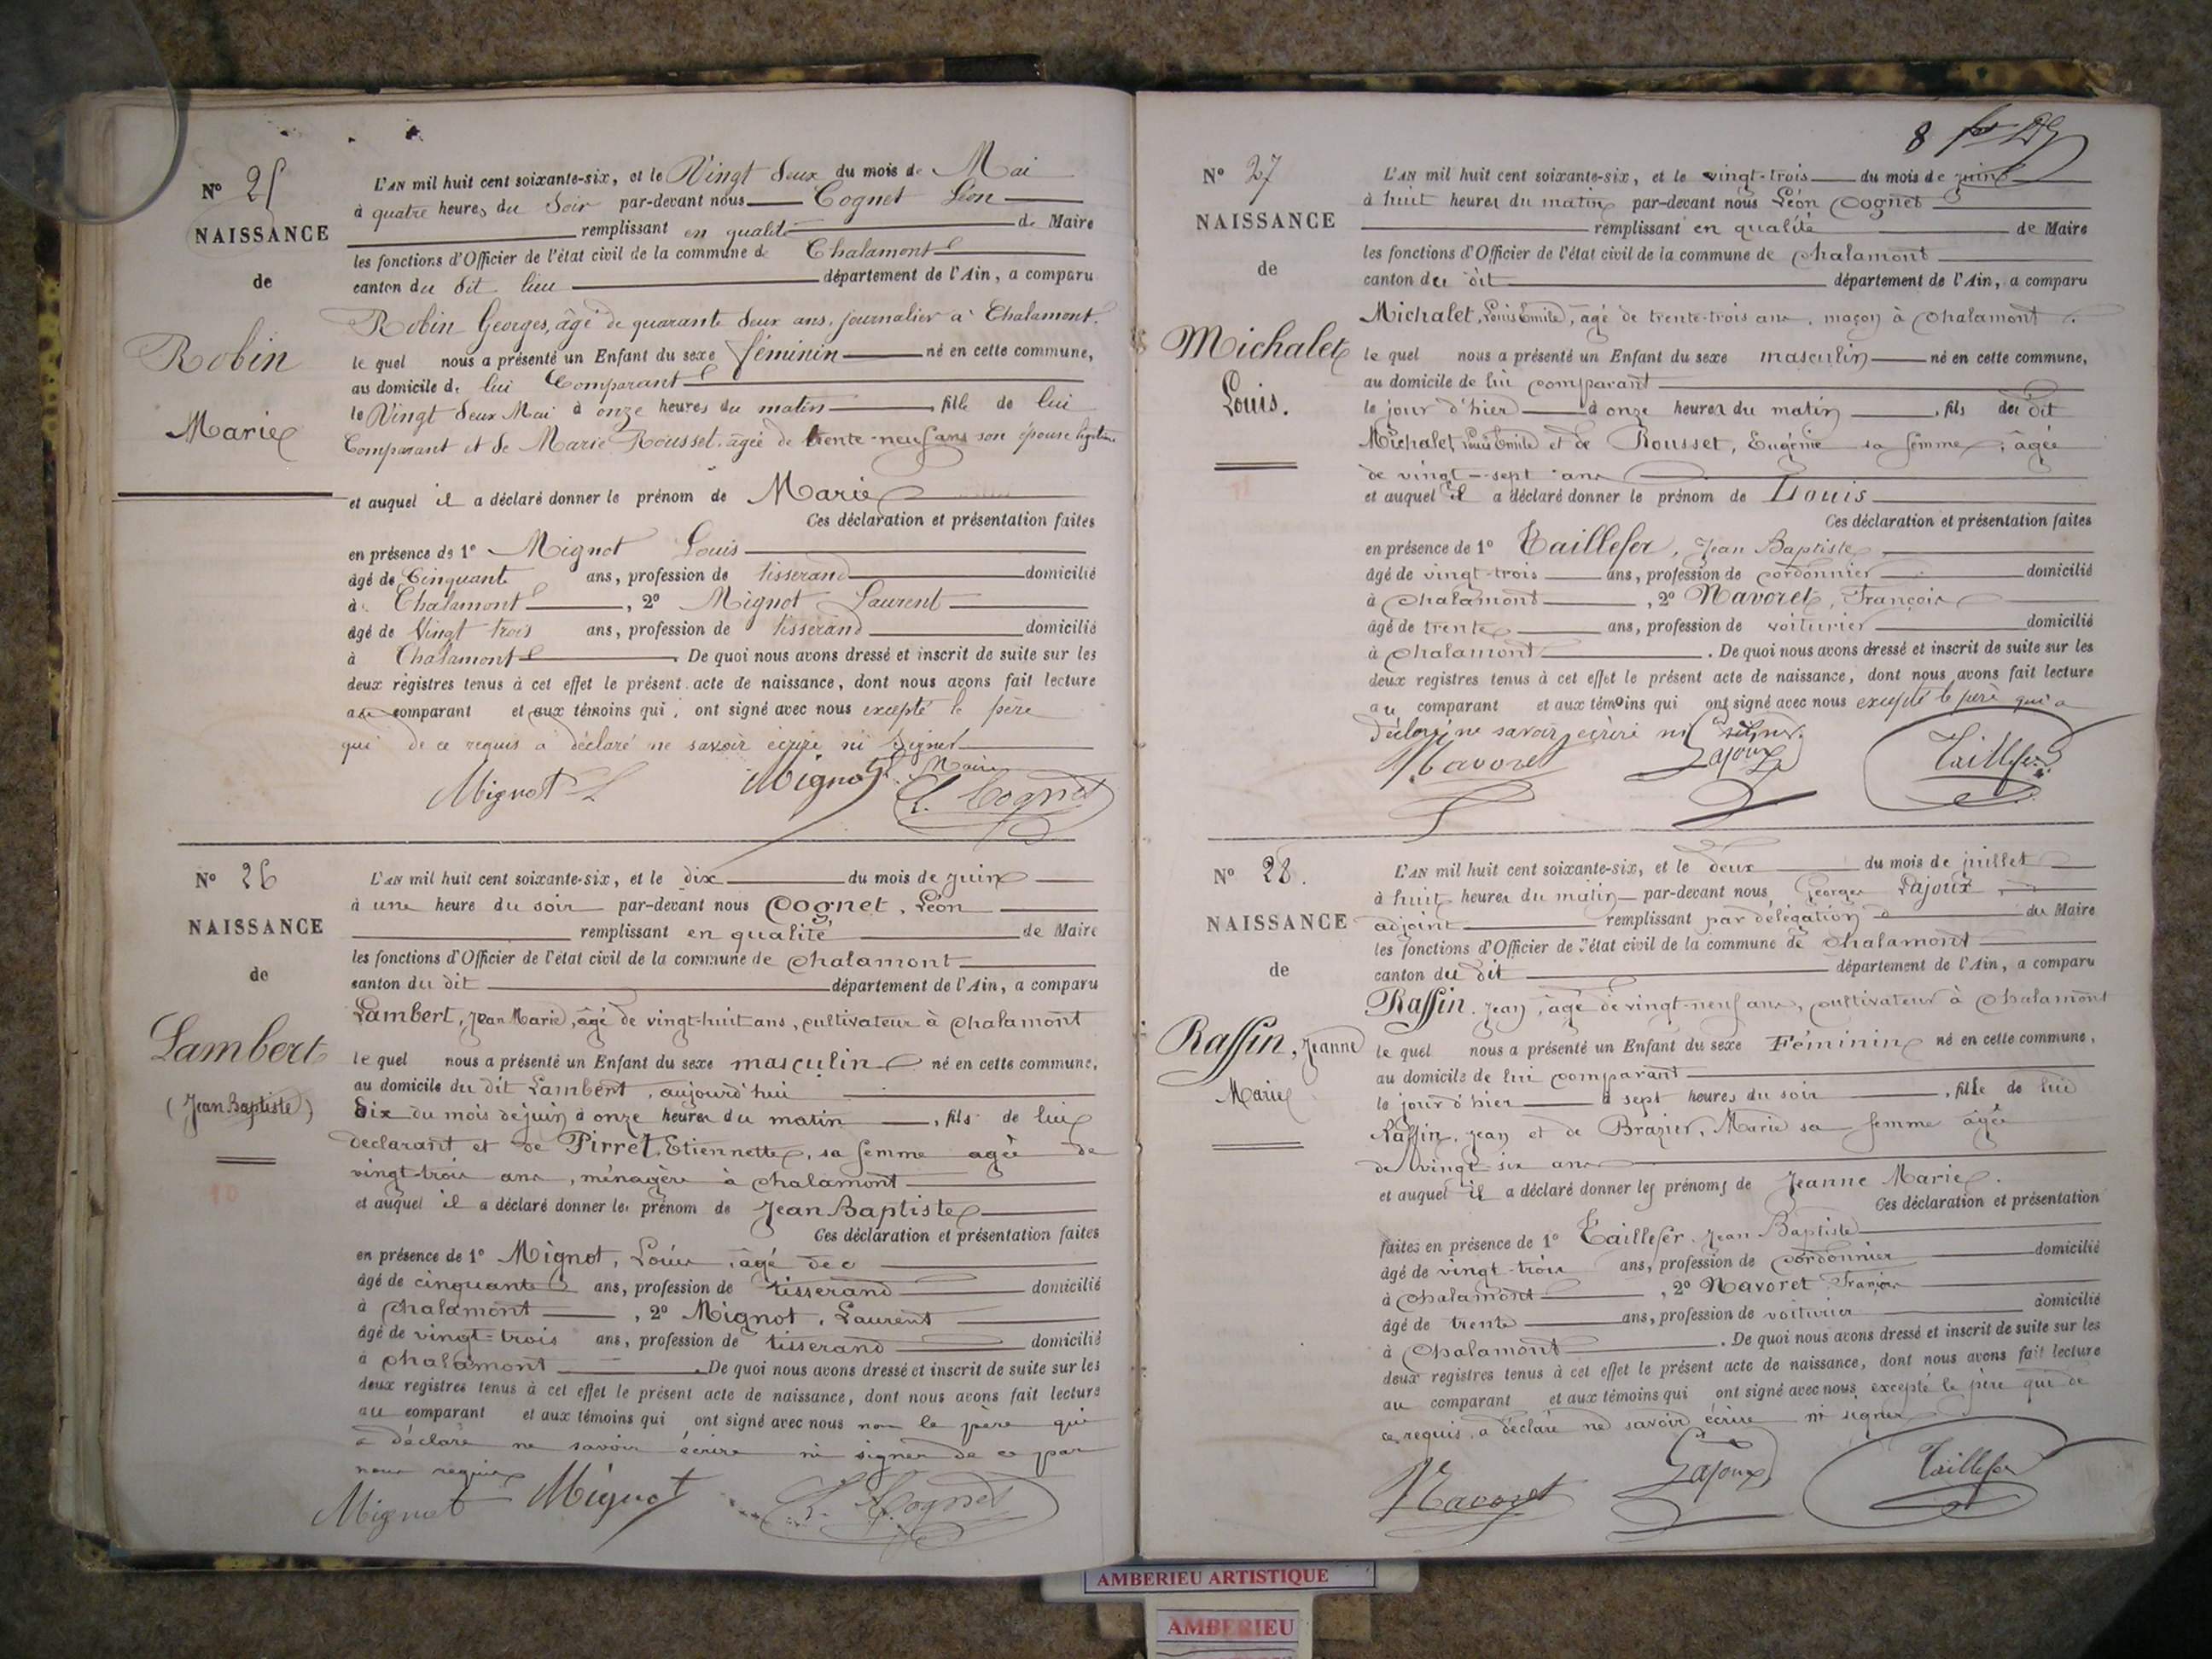 Nº 25
NAISSANCE
de
Robin
Marie
L'AN mil huit cent soixante-six, et le Vingt deux du mois de Mai
à quatre heures du Soir par-devant nous Cognet Léon
remplissant en qualité de Maire
les fonctions d'Officier de l'état civil de la commune de Chalamont
canton du dit lieu département de l'Ain, a comparu
Robin Georges, âgé de quarante deux ans, journalier à Chalamont.
le quel nous a présenté un Enfant du sexe féminin né en cette commune,
au domicile de lui Comparant
le Vingt deux Mai à onze heures du matin, fille de lui
Comparant et de Marie Rousset, âgée de trente-neuf ans son épouse légitime
et auquel il a déclaré donner le prénom de Marie
Ces déclaration et présentation faites
en présence de 1º Mignot Louis
âgé de Cinquante ans, profession de tisserand domicilié
à Chalamont, 2º Mignot Laurent
âgé de Vingt trois ans, profession de tisserand domicilié
à Chalamont. De quoi nous avons dressé et inscrit de suite sur les
deux registres tenus à cet effet le présent acte de naissance, dont nous avons fait lecture
au comparant et aux témoins qui, ont signé avec nous excepté le père
qui de ce requis a déclaré ne savoir écrire ni Signer
Maire
Mignot L Mignot L. Cognet
Nº 26
NAISSANCE
de
Lambert
(Jean Baptiste)
10
L'AN mil huit cent soixante-six, et le dix du mois de juin
à une heure du soir par-devant nous Cognet, Léon
remplissant en qualité de Maire
les fonctions d'Officier de l'état civil de la commune de Chalamont
canton du dit département de l'Ain, a comparu
Lambert, Jean Marie, âgé de vingt-huit ans, cultivateur à Chalamont
le quel nous a présenté un Enfant du sexe masculin né en cette commune,
au domicile du dit Lambert, aujourd'hui
dix du mois de juin à onze heures du matin, fils de lui
déclarant et de Pirret, Etiennette, sa femme agée de
vingt-trois ans, ménagère à Chalamont
et auquel il a déclaré donner les prénom de Jean Baptiste
Ces déclaration et présentation faites
en présence de 1º Mignot, Louis, âgé de
âgé de cinquante ans, profession de tisserand domicilié
à Chalamont, 2º Mignot, Laurent
âgé de vingt-trois ans, profession de tisserand domicilié
à Chalamont. De quoi nous avons dressé et inscrit de suite sur les
deux registres tenus à cet effet le présent acte de naissance, dont nous avons fait lecture
au comparant et aux témoins qui ont signé avec nous non le père qui
a déclaré ne savoir écrire ni signer de ce par
nous requis
Mignot Mignot L. Cognet
8
Nº 27
NAISSANCE
de
Michalet
Louis.
11
L'AN mil huit cent soixante-six, et le vingt-trois du mois de juin
à huit heures du matin par-devant nous Léon Cognet
remplissant en qualité de Maire
les fonctions d'Officier de l'état civil de la commune de Chalamont
canton du dit département de l'Ain, a comparu
Michalet, Louis Emile, âgé de trente-trois ans, maçon à Chalamont.
le quel nous a présenté un Enfant du sexe masculin né en cette commune,
au domicile de lui comparant
le jour d'hier à onze heures du matin, fils du dit
Michalet, Louis Emile et de Rousset, Eugénie sa femme, âgée
de vingt-sept ans
et auquel il a déclaré donner le prénom de Louis
Ces déclaration et présentation faites
en présence de 1º Taillefer, Jean Baptiste,
âgé de vingt-trois ans, profession de cordonnier domicilié
à Chalamont, 2º Navoret, François
âgé de trente ans, profession de voiturier domicilié
à Chalamont. De quoi nous avons dressé et inscrit de suite sur les
deux registres tenus à cet effet le présent acte de naissance, dont nous avons fait lecture
au comparant et aux témoins qui ont signé avec nous excepté le père qui a
déclaré ne savoir écrire ni signer.
Navoret Lajoux Taillefer
Nº 28.
NAISSANCE
de
Raffin, Jeanne
Marie
L'AN mil huit cent soixante-six, et le deux du mois de juillet
à huit heures du matin par-devant nous, Georges Lajoux,
adjoint remplissant par délégation du Maire
les fonctions d'Officier de l'état civil de la commune de Chalamont
canton du dit département de l'Ain, a comparu
Raffin, Jean, âgé de vingt-neuf ans, cultivateur à Chalamont
le quel nous a présenté un Enfant du sexe Féminin né en cette commune,
au domicile de lui comparant
le jour d'hier à sept heures du soir, fille de lui
Raffin, Jean et de Brazier, Marie sa femme âgée
de vingt-six ans
et auquel il a déclaré donner les prénoms de Jeanne Marie.
Ces déclaration et présentation
faites en présence de 1º Taillefer Jean Baptiste
âgé de vingt-trois ans, profession de cordonnier domicilié
à Chalamont, 2º Navoret François
âgé de trente ans, profession de voiturier domicilié
à Chalamont. De quoi nous avons dressé et inscrit de suite sur les
deux registres tenus à cet effet le présent acte de naissance, dont nous avons fait lecture
au comparant et aux témoins qui ont signé avec nous excepté le père qui de
ce requis, a déclaré ne savoir écrire ni signer
Navoret Lajoux Taillefer
AMBERIEU ARTISTIQUE
AMBERIEU